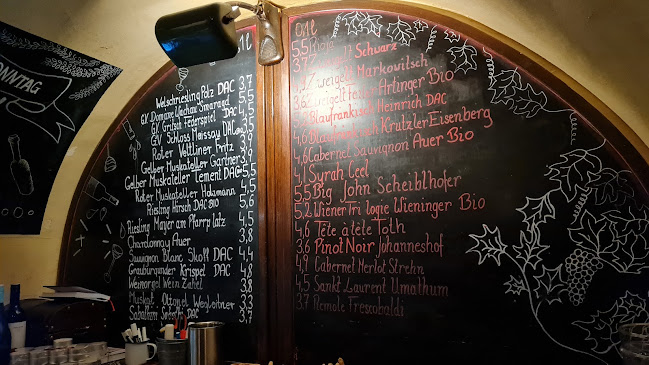 ONNTAG
1l
Welschriesling Polz DAC 3,7
GV Domäne Wachau Smaragd 5,5
GV Gritsch Federspiel DAC
GV Schloss Maissau DAC
Roter Veltliner Fritz
Gelber Muskateller Gartner
Gelber Muskateller Lement DAC
Roter Muskateller Holzmann
Riesling Hirsch DAC BIO
Riesling Mayer am Pfarrplatz 4,5
Chardonnay Auer 3,8
Sauvignon Blanc Skoff DAC 4,4
Grauburgunder Krispel DAC 4,8
Weinorgel Wein Zahel
Muskat Ottonel Wegleitner 3,3
Sabathihof DAC 3,7
5,5 Big
3,7 Zweigelt Schwarz
Zweigelt Markowitsch
3,6 Zweigelt Artinger Bio
Blaufränkisch Heinrich DAC
4,6 Blaufränkisch Kratzler Eisenberg
4,6 Cabernet Sauvignon Auer Bio
4,1 Syrah Leel
5,5 Big John Scheiblhofer
5,2 Wiener Trilogie Wieninger Bio
4,6 Tête à tête Toth
3,6 Pinot Noir Johanneshof
4,9 Cabernet Merlot Strehn
4,5 Sankt Laurent Umathum
3,7 Remole Frescobaldi